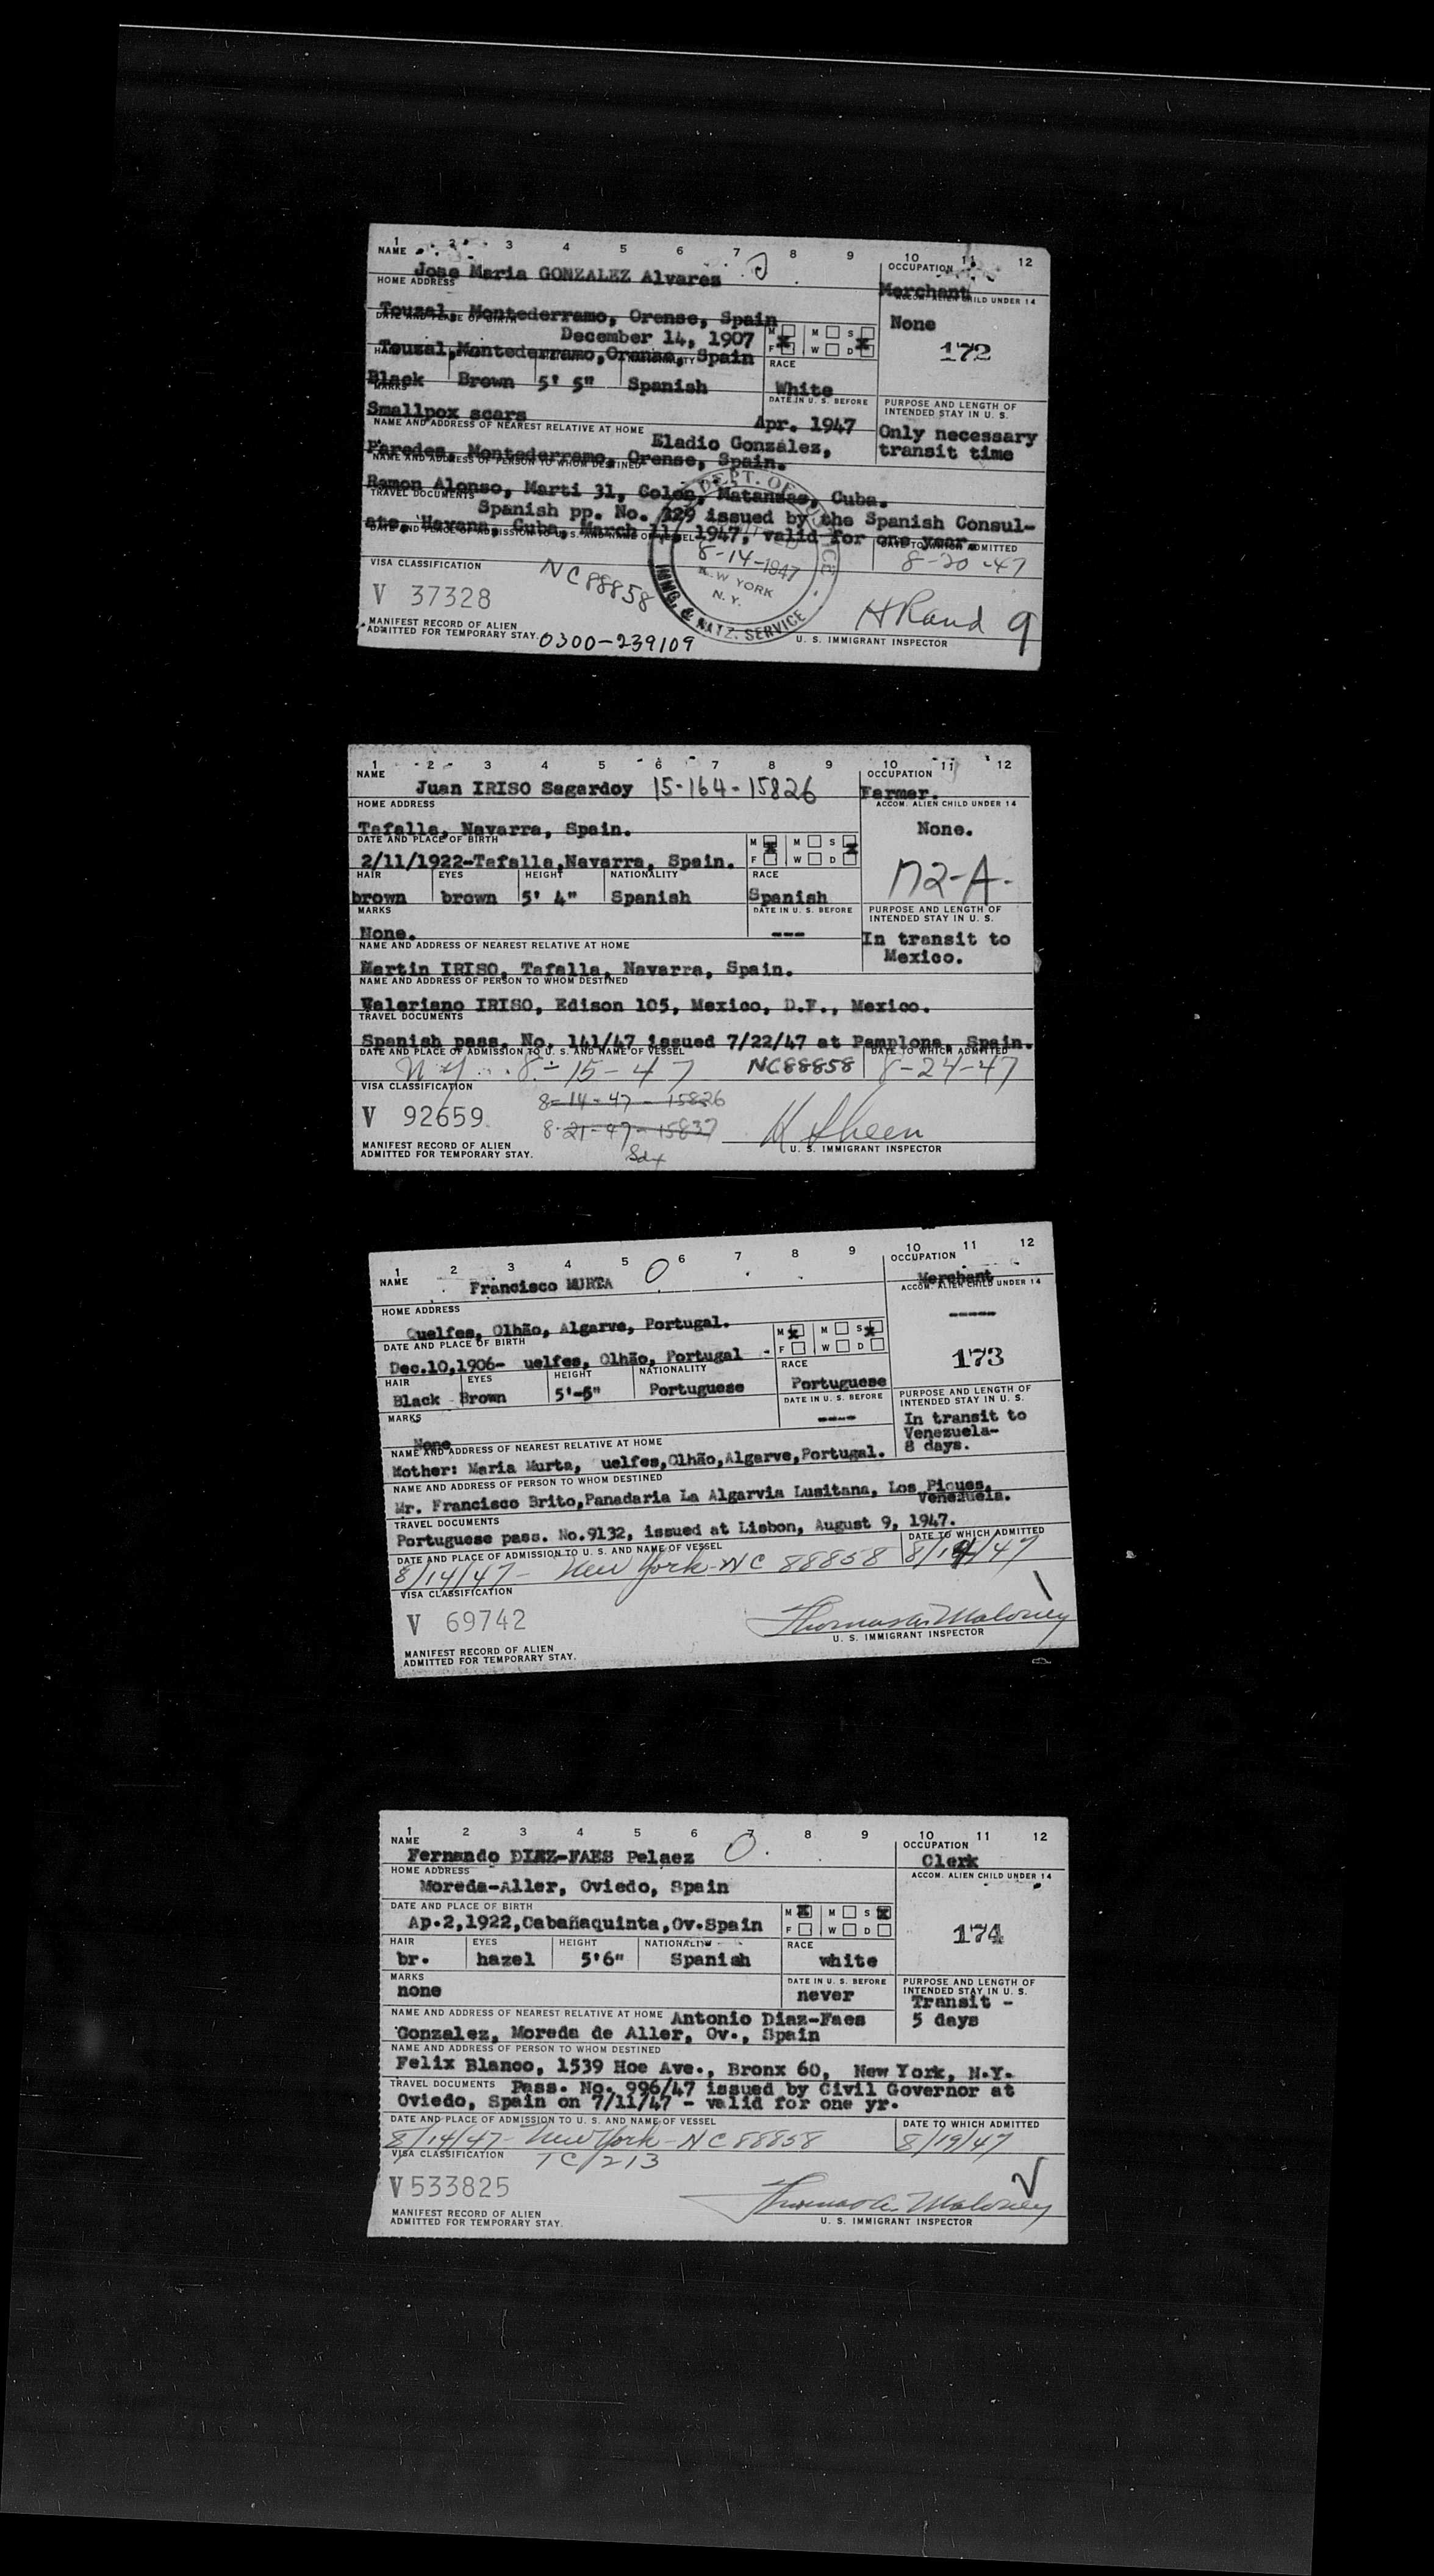 1 2 3 4 5 6 7 8 9 10 11 12
NAME OCCUPATION
Jose Maria GONZALEZ Alvarez Merchant
HOME ADDRESS ACCOM. ALIEN CHILD UNDER 14
Touzal, Montederramo, Orense, Spain None
DATE AND PLACE OF BIRTH M M S
December 14, 1907 F W D
Touzal, Montederramo, Orense, Spain 172
RACE
Black Brown 5' 5" Spanish White
MARKS DATE IN U. S. BEFORE PURPOSE AND LENGTH OF INTENDED STAY IN U. S.
Smallpox scars Apr. 1947 Only necessary
NAME AND ADDRESS OF NEAREST RELATIVE AT HOME transit time
Eladio González,
Paredes, Montederramo, Orense, Spain.
NAME AND ADDRESS OF PERSON TO WHOM DESTINED
Ramon Alonso, Marti 31, Colon, Matanzas, Cuba.
TRAVEL DOCUMENTS
Spanish pp. No. 329 issued by the Spanish Consul-
ate, Havana, Cuba, March 11, 1947, valid for one year.
DATE AND PLACE OF ADMISSION TO U. S. AND NAME OF VESSEL DATE TO WHICH ADMITTED
DEPT. OF JUSTICE
ADMITTED
8-14-1947 8-20-47
NEW YORK
N. Y.
IMMG. & NATZ. SERVICE
VISA CLASSIFICATION NC88858
V 37328 H Rand 9
MANIFEST RECORD OF ALIEN
ADMITTED FOR TEMPORARY STAY. 0300-239109 U. S. IMMIGRANT INSPECTOR
1 2 3 4 5 6 7 8 9 10 11 12
NAME OCCUPATION
Juan IRISO Sagardoy 15-164-15826 Farmer.
HOME ADDRESS ACCOM. ALIEN CHILD UNDER 14
Tafalla, Navarra, Spain. None.
DATE AND PLACE OF BIRTH M M S
2/11/1922-Tafalla,Navarra, Spain. F W D
HAIR EYES HEIGHT NATIONALITY RACE 172-A-
brown brown 5' 4" Spanish Spanish
MARKS DATE IN U. S. BEFORE PURPOSE AND LENGTH OF INTENDED STAY IN U. S.
None. --- In transit to
NAME AND ADDRESS OF NEAREST RELATIVE AT HOME Mexico.
Martin IRISO, Tafalla, Navarra, Spain.
NAME AND ADDRESS OF PERSON TO WHOM DESTINED
Valeriano IRISO, Edison 105, Mexico, D.F., Mexico.
TRAVEL DOCUMENTS
Spanish pass. No. 141/47 issued 7/22/47 at Pamplona, Spain.
DATE AND PLACE OF ADMISSION TO U. S. AND NAME OF VESSEL DATE TO WHICH ADMITTED
N.Y. 8-15-47 NC88858 8-24-47
VISA CLASSIFICATION
8-14-47-15826
V 92659
8-21-47-15837
MANIFEST RECORD OF ALIEN
ADMITTED FOR TEMPORARY STAY. U. S. IMMIGRANT INSPECTOR
1 2 3 4 5 6 7 8 9 10 11 12
NAME OCCUPATION
Francisco MURTA Merchant
HOME ADDRESS ACCOM. ALIEN CHILD UNDER 14
Quelfes, Olhão, Algarve, Portugal. -----
DATE AND PLACE OF BIRTH M M S
Dec.10,1906- uelfes, Olhão, Portugal - F W D
HAIR EYES HEIGHT NATIONALITY RACE 173
Black Brown 5'-5" Portuguese Portuguese
MARKS DATE IN U. S. BEFORE PURPOSE AND LENGTH OF INTENDED STAY IN U. S.
None ---- In transit to
NAME AND ADDRESS OF NEAREST RELATIVE AT HOME Venezuela-
Mother: Maria Murta, uelfes,Olhão,Algarve,Portugal. 8 days.
NAME AND ADDRESS OF PERSON TO WHOM DESTINED
Mr. Francisco Brito,Panadaria La Algarvia Lusitana, Los Piques,
Venezuela.
TRAVEL DOCUMENTS
Portuguese pass. No.9132, issued at Lisbon, August 9, 1947.
DATE AND PLACE OF ADMISSION TO U. S. AND NAME OF VESSEL DATE TO WHICH ADMITTED
8/14/47- New York-NC 88858
VISA CLASSIFICATION
V 69742 Thomas A. Maloney
MANIFEST RECORD OF ALIEN
ADMITTED FOR TEMPORARY STAY. U. S. IMMIGRANT INSPECTOR
1 2 3 4 5 6 7 8 9 10 11 12
NAME OCCUPATION
Fernando DIAZ-FAES Pelaez Clerk
HOME ADDRESS ACCOM. ALIEN CHILD UNDER 14
Moreda-Aller, Oviedo, Spain
DATE AND PLACE OF BIRTH M M S
Ap.2,1922,Cabañaquinta,Ov.Spain F W D
HAIR EYES HEIGHT NATIONALITY RACE 174
br. hazel 5'6" Spanish white
MARKS DATE IN U. S. BEFORE PURPOSE AND LENGTH OF INTENDED STAY IN U. S.
none never Transit -
NAME AND ADDRESS OF NEAREST RELATIVE AT HOME Antonio Diaz-Faes 5 days
Gonzalez, Moreda de Aller, Ov., Spain
NAME AND ADDRESS OF PERSON TO WHOM DESTINED
Felix Blanco, 1539 Hoe Ave., Bronx 60, New York, N.Y.
TRAVEL DOCUMENTS Pass. No. 996/47 issued by Civil Governor at
Oviedo, Spain on 7/11/47 - valid for one yr.
DATE AND PLACE OF ADMISSION TO U. S. AND NAME OF VESSEL DATE TO WHICH ADMITTED
8/14/47-New York-NC88858 8/19/47
VISA CLASSIFICATION TC/213
V533825 Thomas A. Maloney
MANIFEST RECORD OF ALIEN
ADMITTED FOR TEMPORARY STAY. U. S. IMMIGRANT INSPECTOR